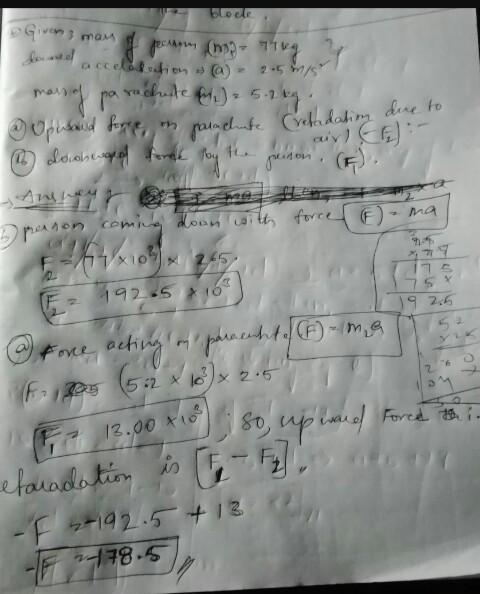 blocks.
① Given; mass of person (m₁) = 77kg
downward acceleradation ⇒ (a) = 2.5 m/s²
mass of parachute (m₂) = 5.2kg.
ⓐ Upward force, on parachute (retadation due to
air) (-F₂) :-
ⓑ downward force by the person. (F₁).
→ Answer :
b) person coming down with force (F) = ma
F₂ = (77 × 10³) × 2.5.
F₂ = 192.5 × 10³
ⓐ Force acting on parachute (F) = m₂a
F = (5.2 × 10³) × 2.5
F₁ = 13.00 × 10³ ; so, upward Force
retaradation is [F₁ - F₂],,
-F = -192.5 + 13
-F = -178.5 //
175
192.5
52